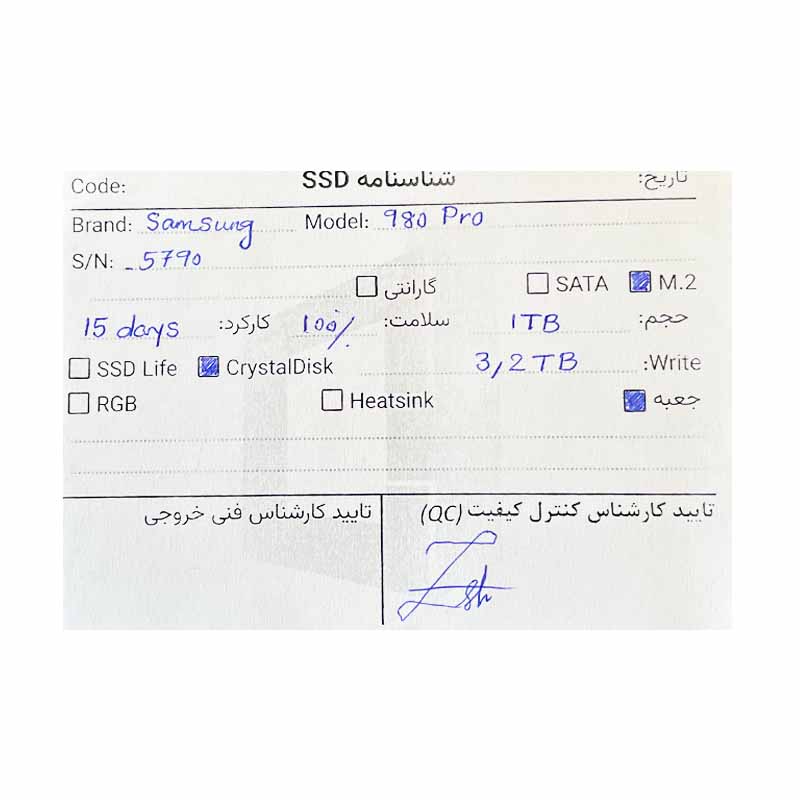 Code: شناسنامه SSD تاریخ:
Brand: Samsung Model: 980 Pro
S/N: _5790
گارانتی SATA M.2
15 days کارکرد: 100% سلامت: 1TB حجم:
SSD Life CrystalDisk 3,2TB Write:
RGB Heatsink جعبه
تایید کارشناس فنی خروجی تایید کارشناس کنترل کیفیت (QC)